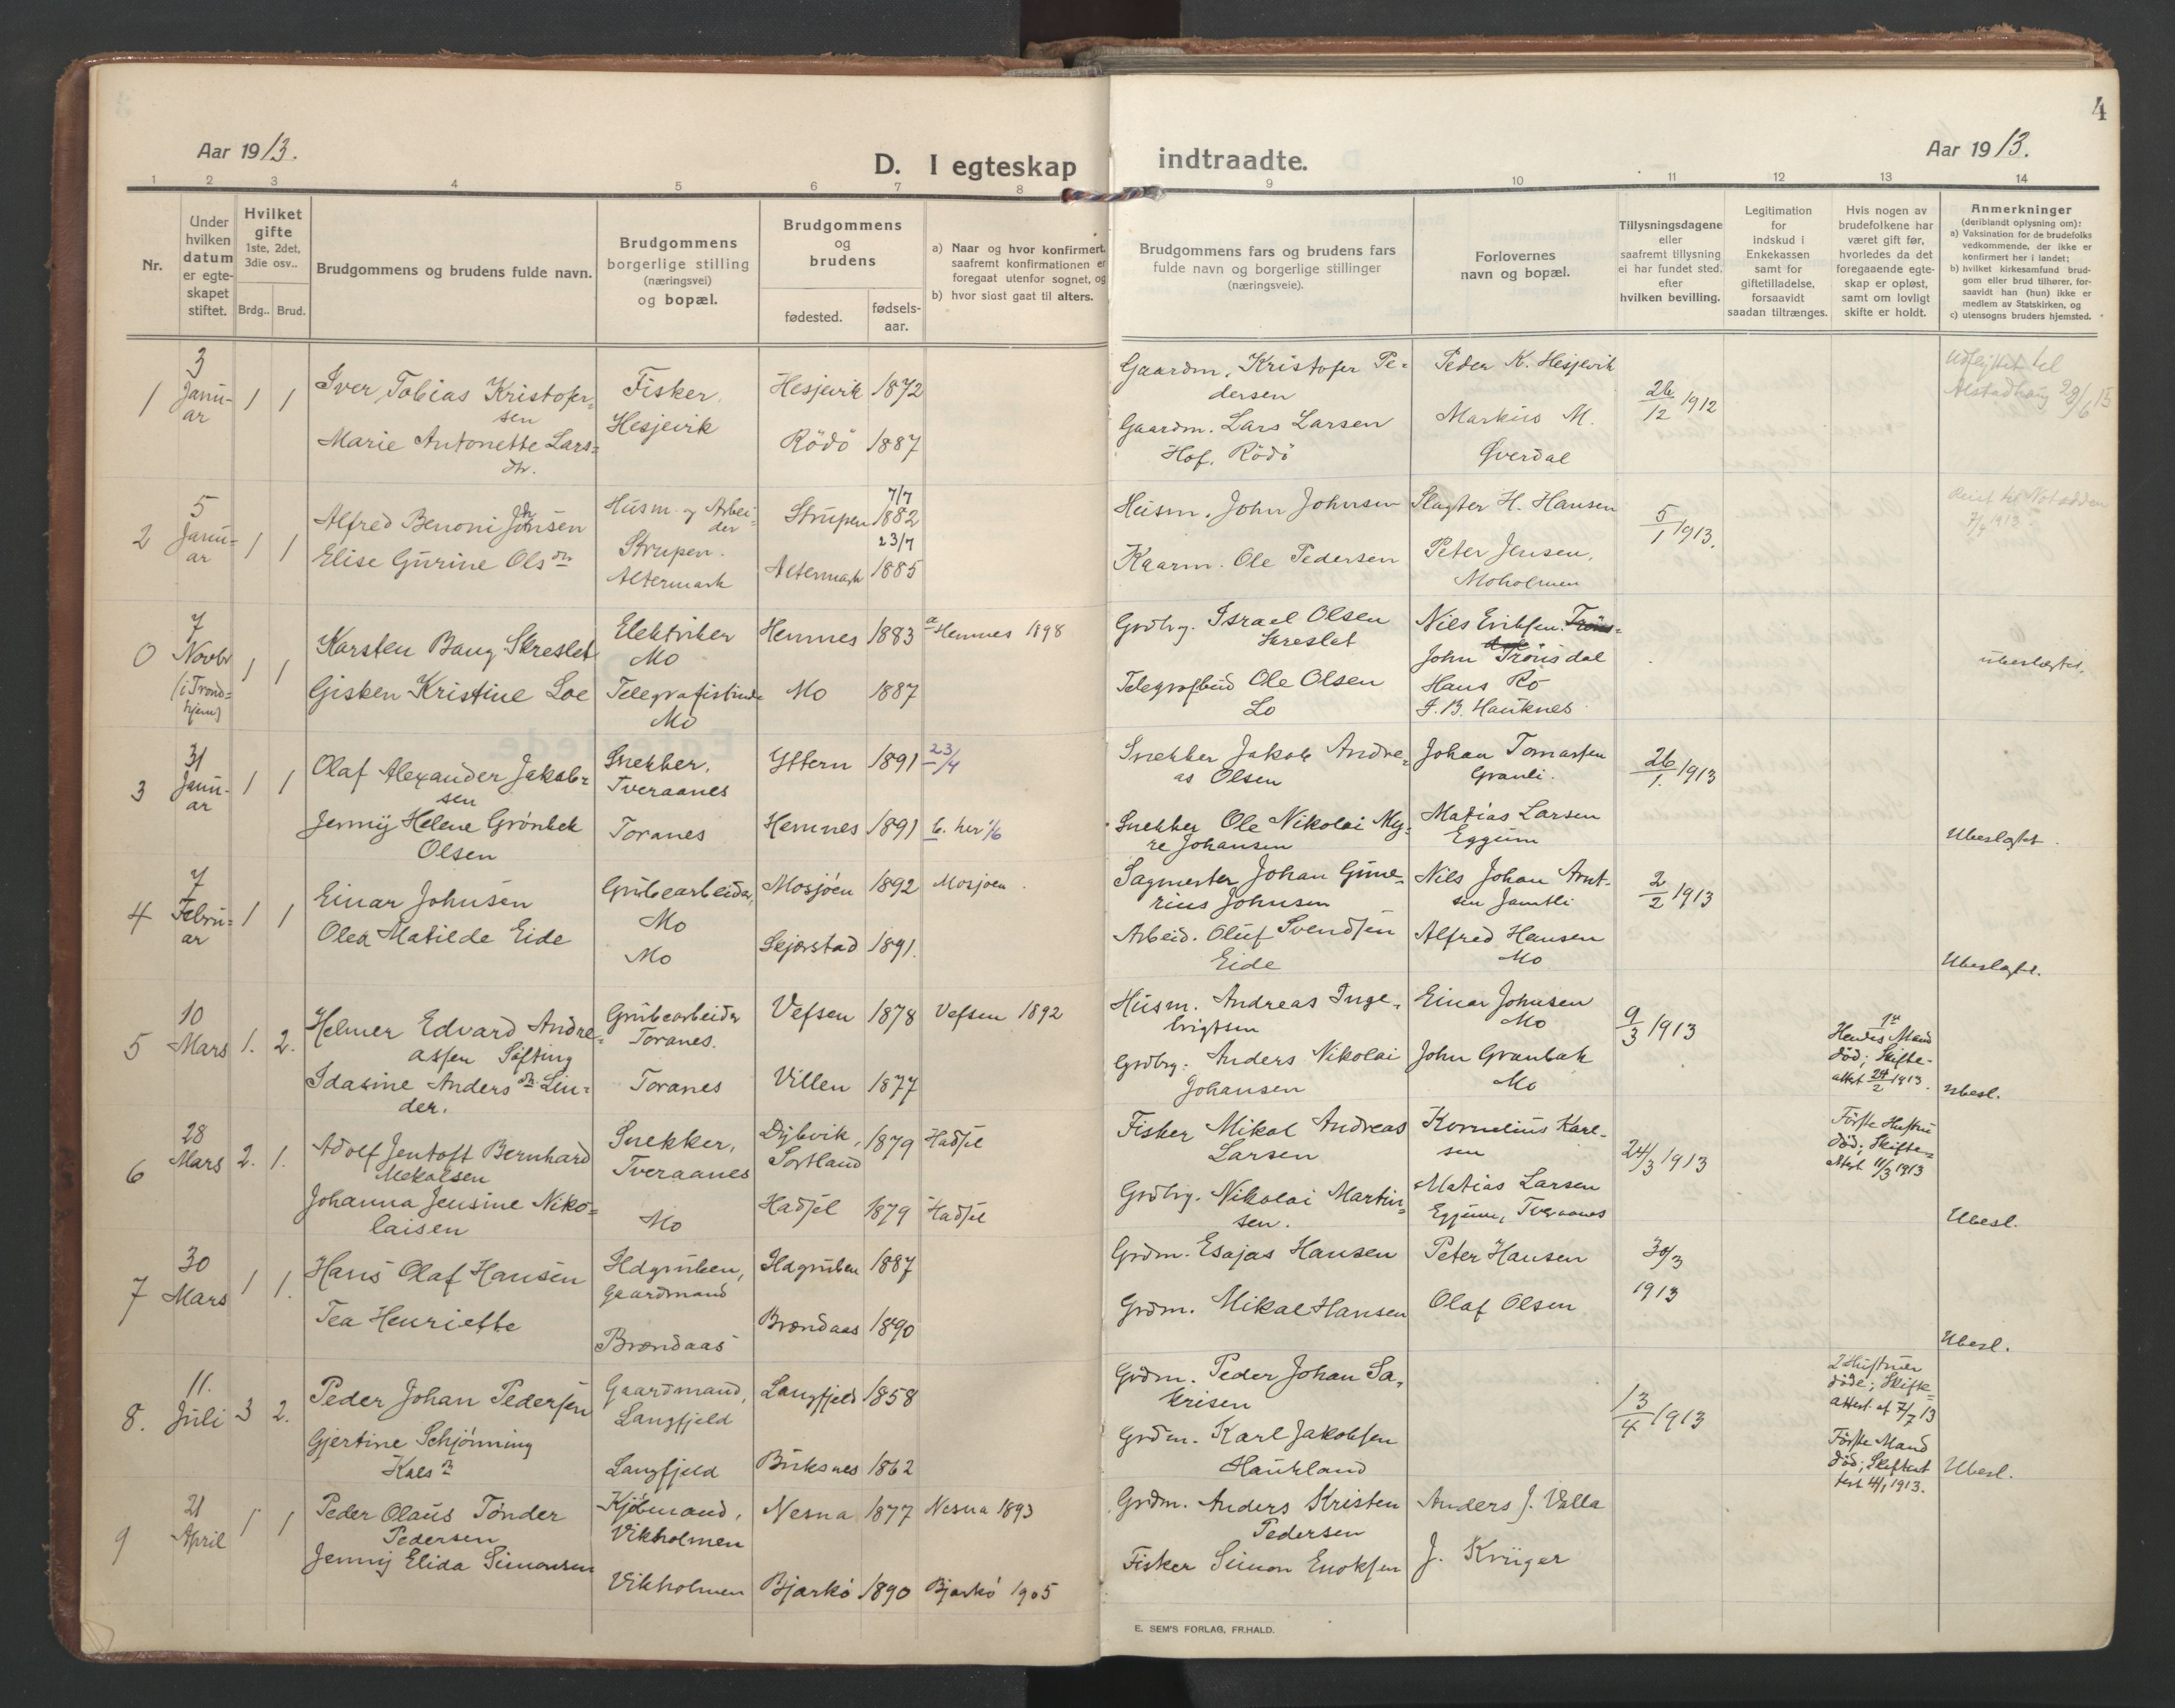 4
Aar 1913.
D. I egteskap indtraadte.
Aar 1913.
1 2 3 4 5 6 7 8 9 10 11 12 13 14
Nr.
Under
hvilken
datum
er egte-
skapet
stiftet.
Hvilket
gifte
1ste, 2det,
3die osv..
Brdg.. Brud.
Brudgommens og brudens fulde navn.
Brudgommens
borgerlige stilling
(næringsvei)
og bopæl.
Brudgommens
og
brudens
fødested.
fødsels-
aar.
a) Naar og hvor konfirmert,
saafremt konfirmationen er
foregaat utenfor sognet, og
b) hvor sidst gaat til alters.
Brudgommens fars og brudens fars
fulde navn og borgerlige stillinger
(næringsveie).
Forlovernes
navn og bopæl.
Tillysningsdagene
eller
saafremt tillysning
ei har fundet sted.
efter
hvilken bevilling.
Legitimation
for
indskud i
Enkekassen
samt for
giftetilladelse,
forsaavidt
saadan tiltrænges.
Hvis nogen av
brudefolkene har
været gift før,
hvorledes da det
foregaaende egte-
skap er opløst,
samt om lovligt
skifte er holdt.
Anmerkninger
(deriblandt oplysning om):
a) Vaksination for de brudefolks
vedkommende, der ikke er
konfirmert her i landet;
b) hvilket kirkesamfund brud-
gom eller brud tilhører, for-
saavidt han (hun) ikke er
medlem av Statskirken, og
c) utensogns bruders hjemsted.
1
3
Janu-
ar
1 1
Iver Tobias Kristofer-
sen
Marie Antonette Lars-
dtr.
Fisker
Hesjevik
Hesjevik 1872
Rödö 1887
Gaardm. Kristofer Pe-
dersen
Gaardm. Lars Larsen
Hof, Rödö
Peder K. Hesjevik
Markus M.
Øverdal
26/12 1912
Utflyttet til
Alstadhaug 29/6 15
2
5
Janu-
ar
1 1
Alfred Benoni Johnsen
Elise Gurine Olsdtr
Husm. og Arbei-
der
Strupen.
Altermark
Strupen 7/7 1882
Altermark 23/7 1885
Husm. John Johnsen
Kaarm. Ole Pedersen
Slagter H. Hansen
Peter Jensen,
Moholmen
5/1 1913.
Reist til Notodden
7/4 1913
0
7
Novbr
(i Trond-
hjem)
1 1
Karsten Bang Skreslet
Gisken Kristine Loe
Elektriker
Mo
Telegrafistinde
Mo
Hemnes 1883
Mo 1887
a Hemnes 1898
Grdbrg. Israel Olsen
Skreslet
Telegrafbud Ole Olsen
Lo
Nils Eriksen. Tröns-
dal
John Trönsdal
Hans Rö
F. B. Hauknes
ubeslægtet.
3
31
Janu-
ar
1 1
Olaf Alexander Jakob-
sen
Jenny Helene Grönbek
Olsen
Snekker,
Tveraanes
Toranes
Yttern 1891
Hemnes 1891
23/4
b. her 1/6
Snekker Jakob Andre-
as Olsen
Snekker Ole Nikolai My-
re Johansen
Johan Tomassen
Granli.
Matias Larsen
Eggum
26/1. 1913
Ubeslegtet.
4
7
Febru-
ar
1 1
Einar Johnsen
Olea Matilde Eide
Grubearbeider,
Mo
Mo
Mosjöen 1892
Skjerstad 1891.
Mosjöen.
Sagmester Johan Gune-
rius Johnsen
Arbeid. Oluf Svendsen
Eide
Nils Johan Arnt-
sen Jamtli
Alfred Hansen
Mo
2/2 1913
Ubeslegtet.
5
10
Mars
1. 2.
Helmer Edvard Andre-
assen Söfting
Idasine Andersdtr Lin-
der.
Grubearbeider
Toranes.
Toranes
Vefsen 1878
Villen 1877
Vefsen 1892
Husm. Andreas Inge-
brigtsen
Grdbrg. Anders Nikolai
Johansen
Einar Johnsen
Mo
John Granbak
Mo
9/3 1913
1ste
Hendes Mand
död; Skifte-
attest 24/2 1913.
Ubesl.
6
28
Mars
2. 1.
Adolf Jentoft Bernhard
Mekalsen
Johanna Jensine Niko-
laisen
Snekker,
Tveraanes
Mo
Dybvik,
Sortland
1879
Hadsel 1879
Hadsel
Hadsel
Fisker Mikal Andreas
Larsen
Grdbrg. Nikolai Martin-
sen.
Kornelius Karl-
sen
Matias Larsen
Eggum, Tveraanes
24/3 1913
Förste Hustru
död; Skifte-
attest 11/3 1913
Ubesl.
7
30
Mars
1 1.
Hans Olaf Hansen
Tea Henriette
Ildgruben,
Gaardmand
Brændaas
Ildgruben 1887
Brændaas 1890
Grdm. Esajas Hansen
Grdm. Mikal Hansen
Peter Hansen
Olaf Olsen
30/3
1913
Ubesl.
8.
11.
Juli
3 2.
Peder Johan Pedersen
Gjertine Schjönning
Kalsdtr
Gaardmand,
Langfjeld
Langfjeld
Langfjeld 1858
Buksnes 1862
Grdm. Peder Johan Sa-
krisen
Grdm. Karl Jakobsen
Haukland
13/4 1913
2 Hustruer
döde; Skifte-
attest af 7/7 13
Förste Mand
död; Skifteat
test 4/1 1913.
Ubesl.
9
21
April
1 1
Peder Olaus Tönder
Pedersen
Jenny Elida Simonsen
Kjöbmand,
Vikholmen
Vikholmen
Nesna 1877
Bjarkö 1890
Nesna 1893
Bjarkö 1905
Grdm. Anders Kristen
Pedersen
Fisker Simon Enoksen
Anders J. Valla
J. Krüger
E. SEM'S FORLAG, FR.HALD.